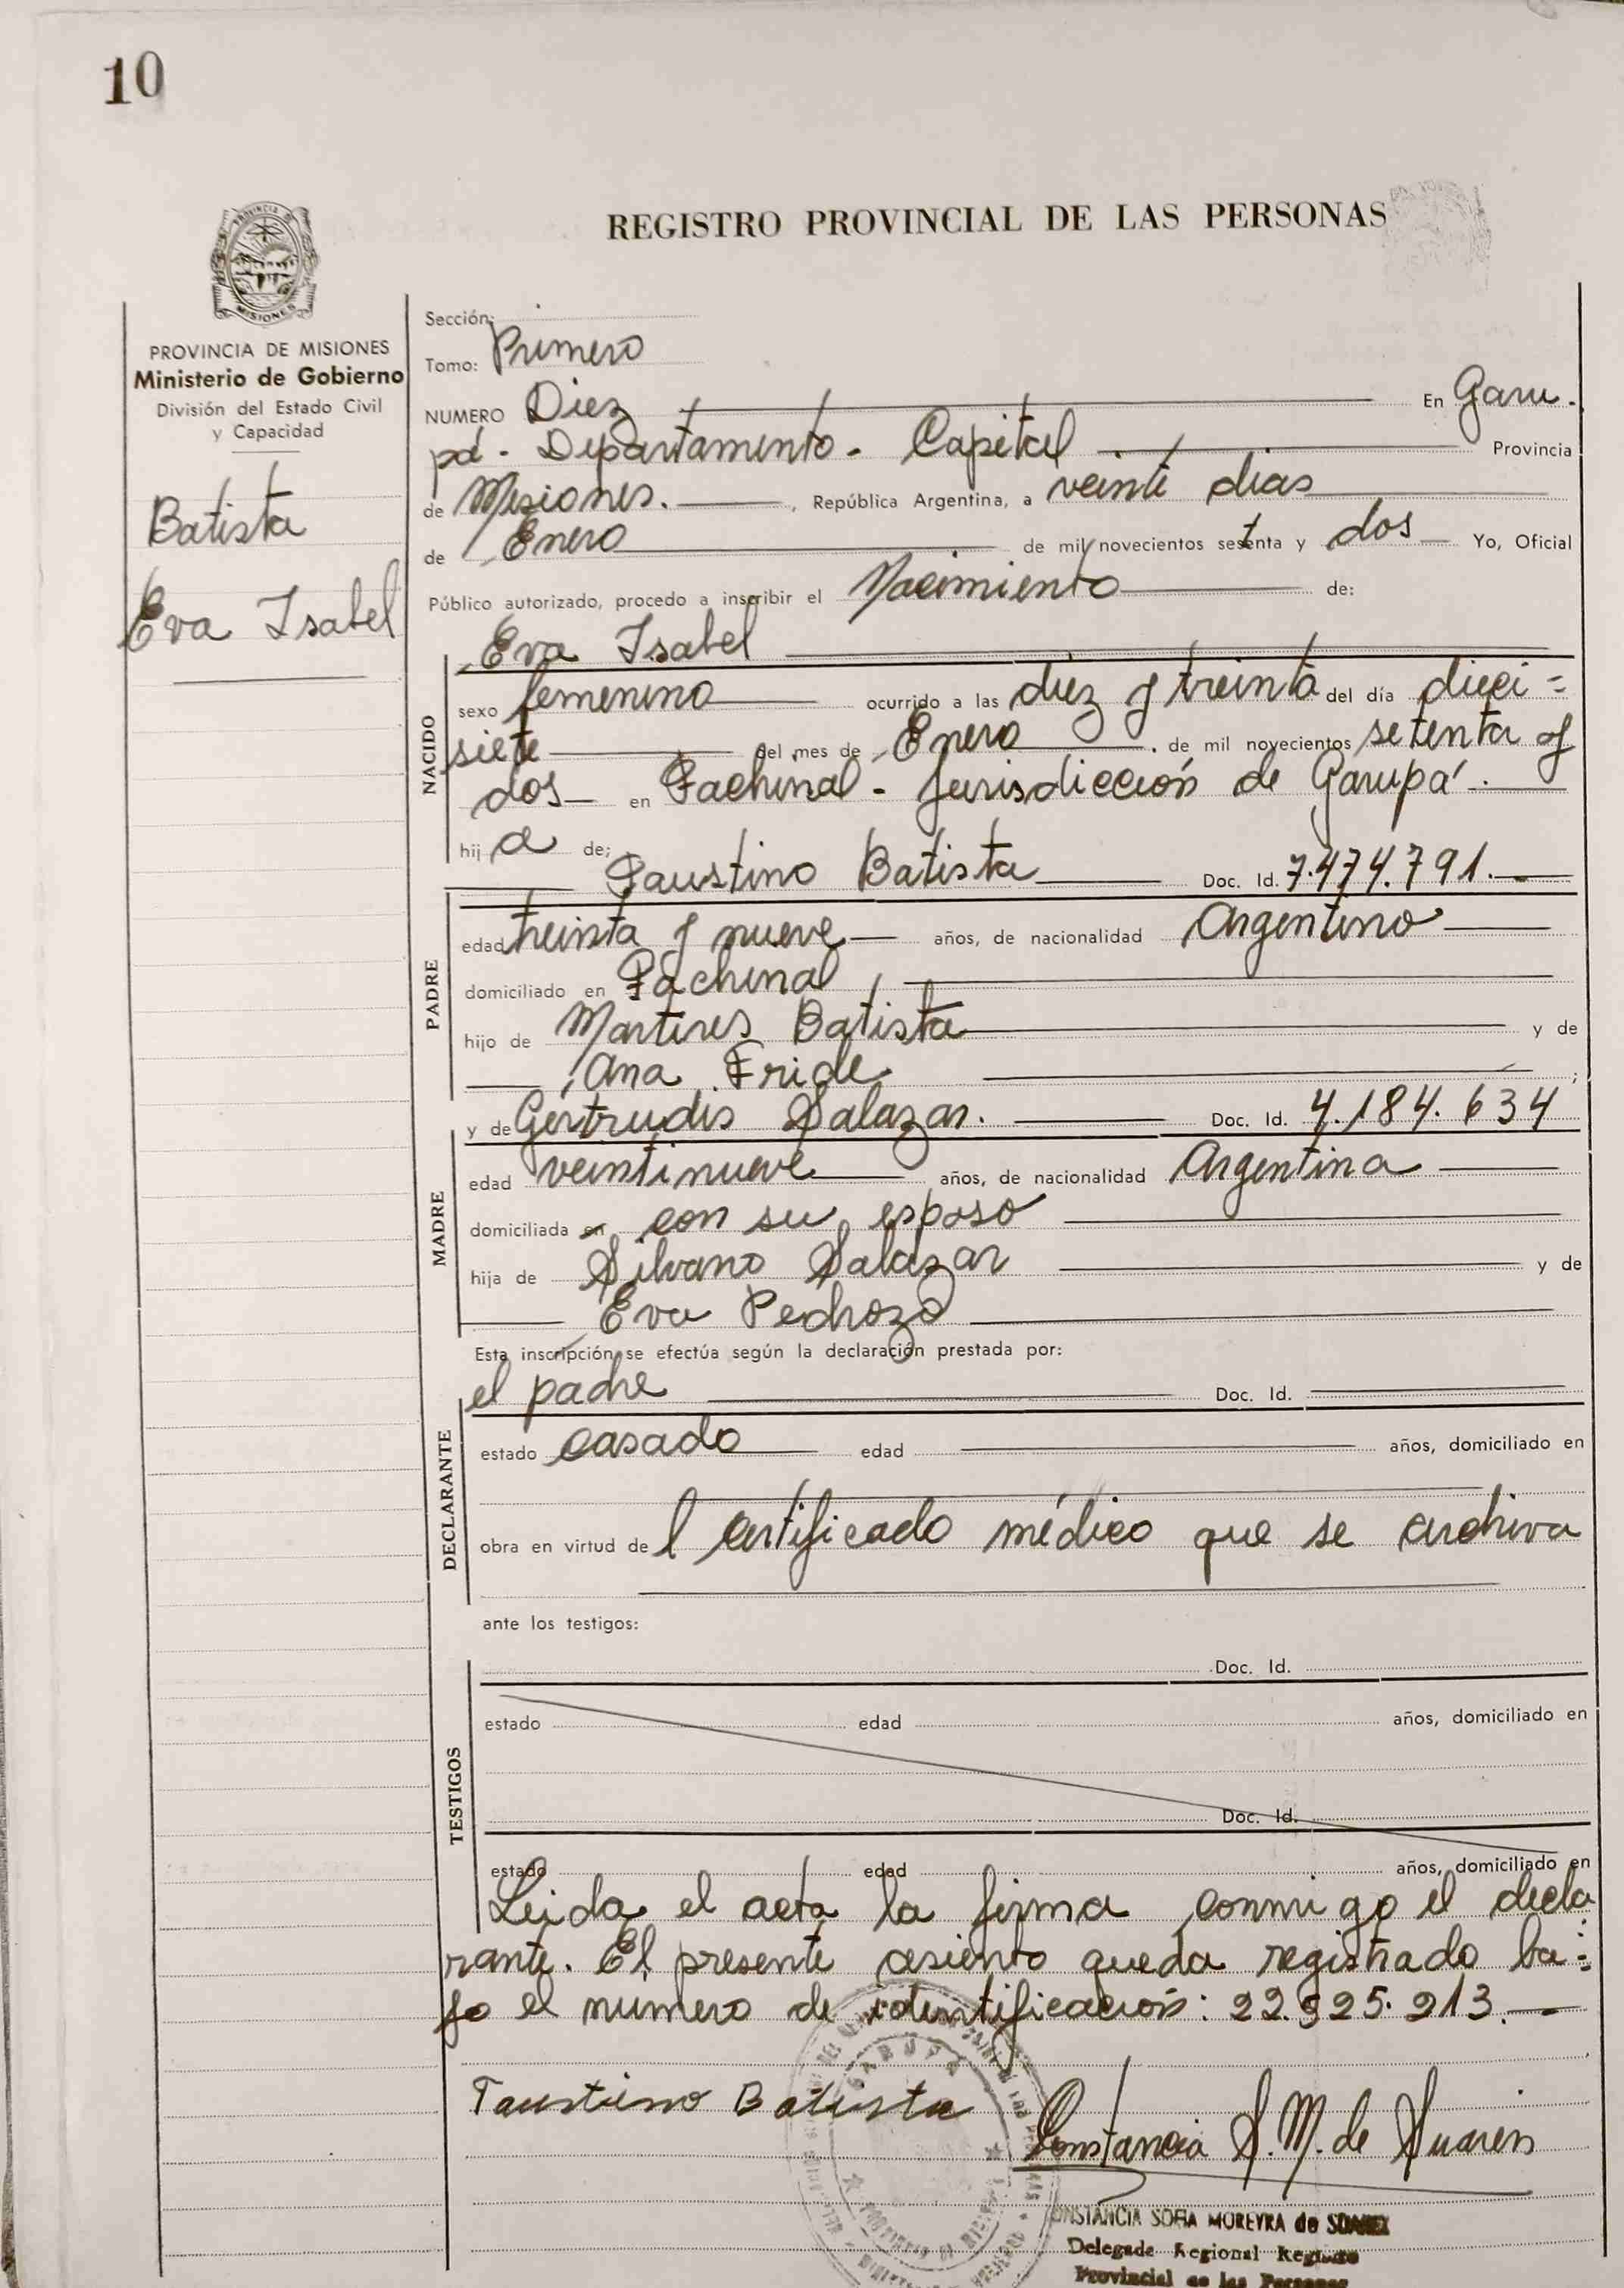 10
REGISTRO PROVINCIAL DE LAS PERSONAS
PROVINCIA DE MISIONES
Ministerio de Gobierno
División del Estado Civil
y Capacidad
Batista
Eva Isabel
Sección:
Tomo: Primero
NUMERO Diez En Garu-
pá - Departamento - Capital Provincia
de Misiones. , República Argentina, a veinte dias
de Enero de mil novecientos setenta y dos Yo, Oficial
Público autorizado, procedo a inscribir el Nacimiento de:
Eva Isabel
NACIDO
sexo femenino ocurrido a las diez y treinta del día dieci=
siete del mes de Enero . de mil novecientos setenta y
dos en Fachinal - Jurisdicción de Garupá.
hij a de;
Faustino Batista Doc. Id. 7.474.791.
PADRE
edad treinta y nueve años, de nacionalidad Argentino
domiciliado en Fachinal
hijo de Martires Batista y de
Ana Fride ;
y de Gertrudis Salazar. Doc. Id. 4.184.634
MADRE
edad veintinueve años, de nacionalidad Argentina
domiciliada en con su esposo
hija de Silvano Salazar y de
Eva Pedrozo
Esta inscripción se efectúa según la declaración prestada por:
el padre Doc. Id.
DECLARANTE
estado casado edad años, domiciliado en
obra en virtud de l certificado médico que se archiva
ante los testigos:
Doc. Id.
TESTIGOS
estado edad años, domiciliado en
Doc. Id.
estado edad años, domiciliado en
Leida el acta la firma conmigo el decla
rante. El presente asiento queda registrado ba=
jo el numero de identificación: 22.525.213.
Faustino Batista
Constancia S. M. de Suarez
GARUPA
CONSTANCIA SOFIA MOREYRA de SUAREZ
Delegada Regional Registro
Provincial de las Personas